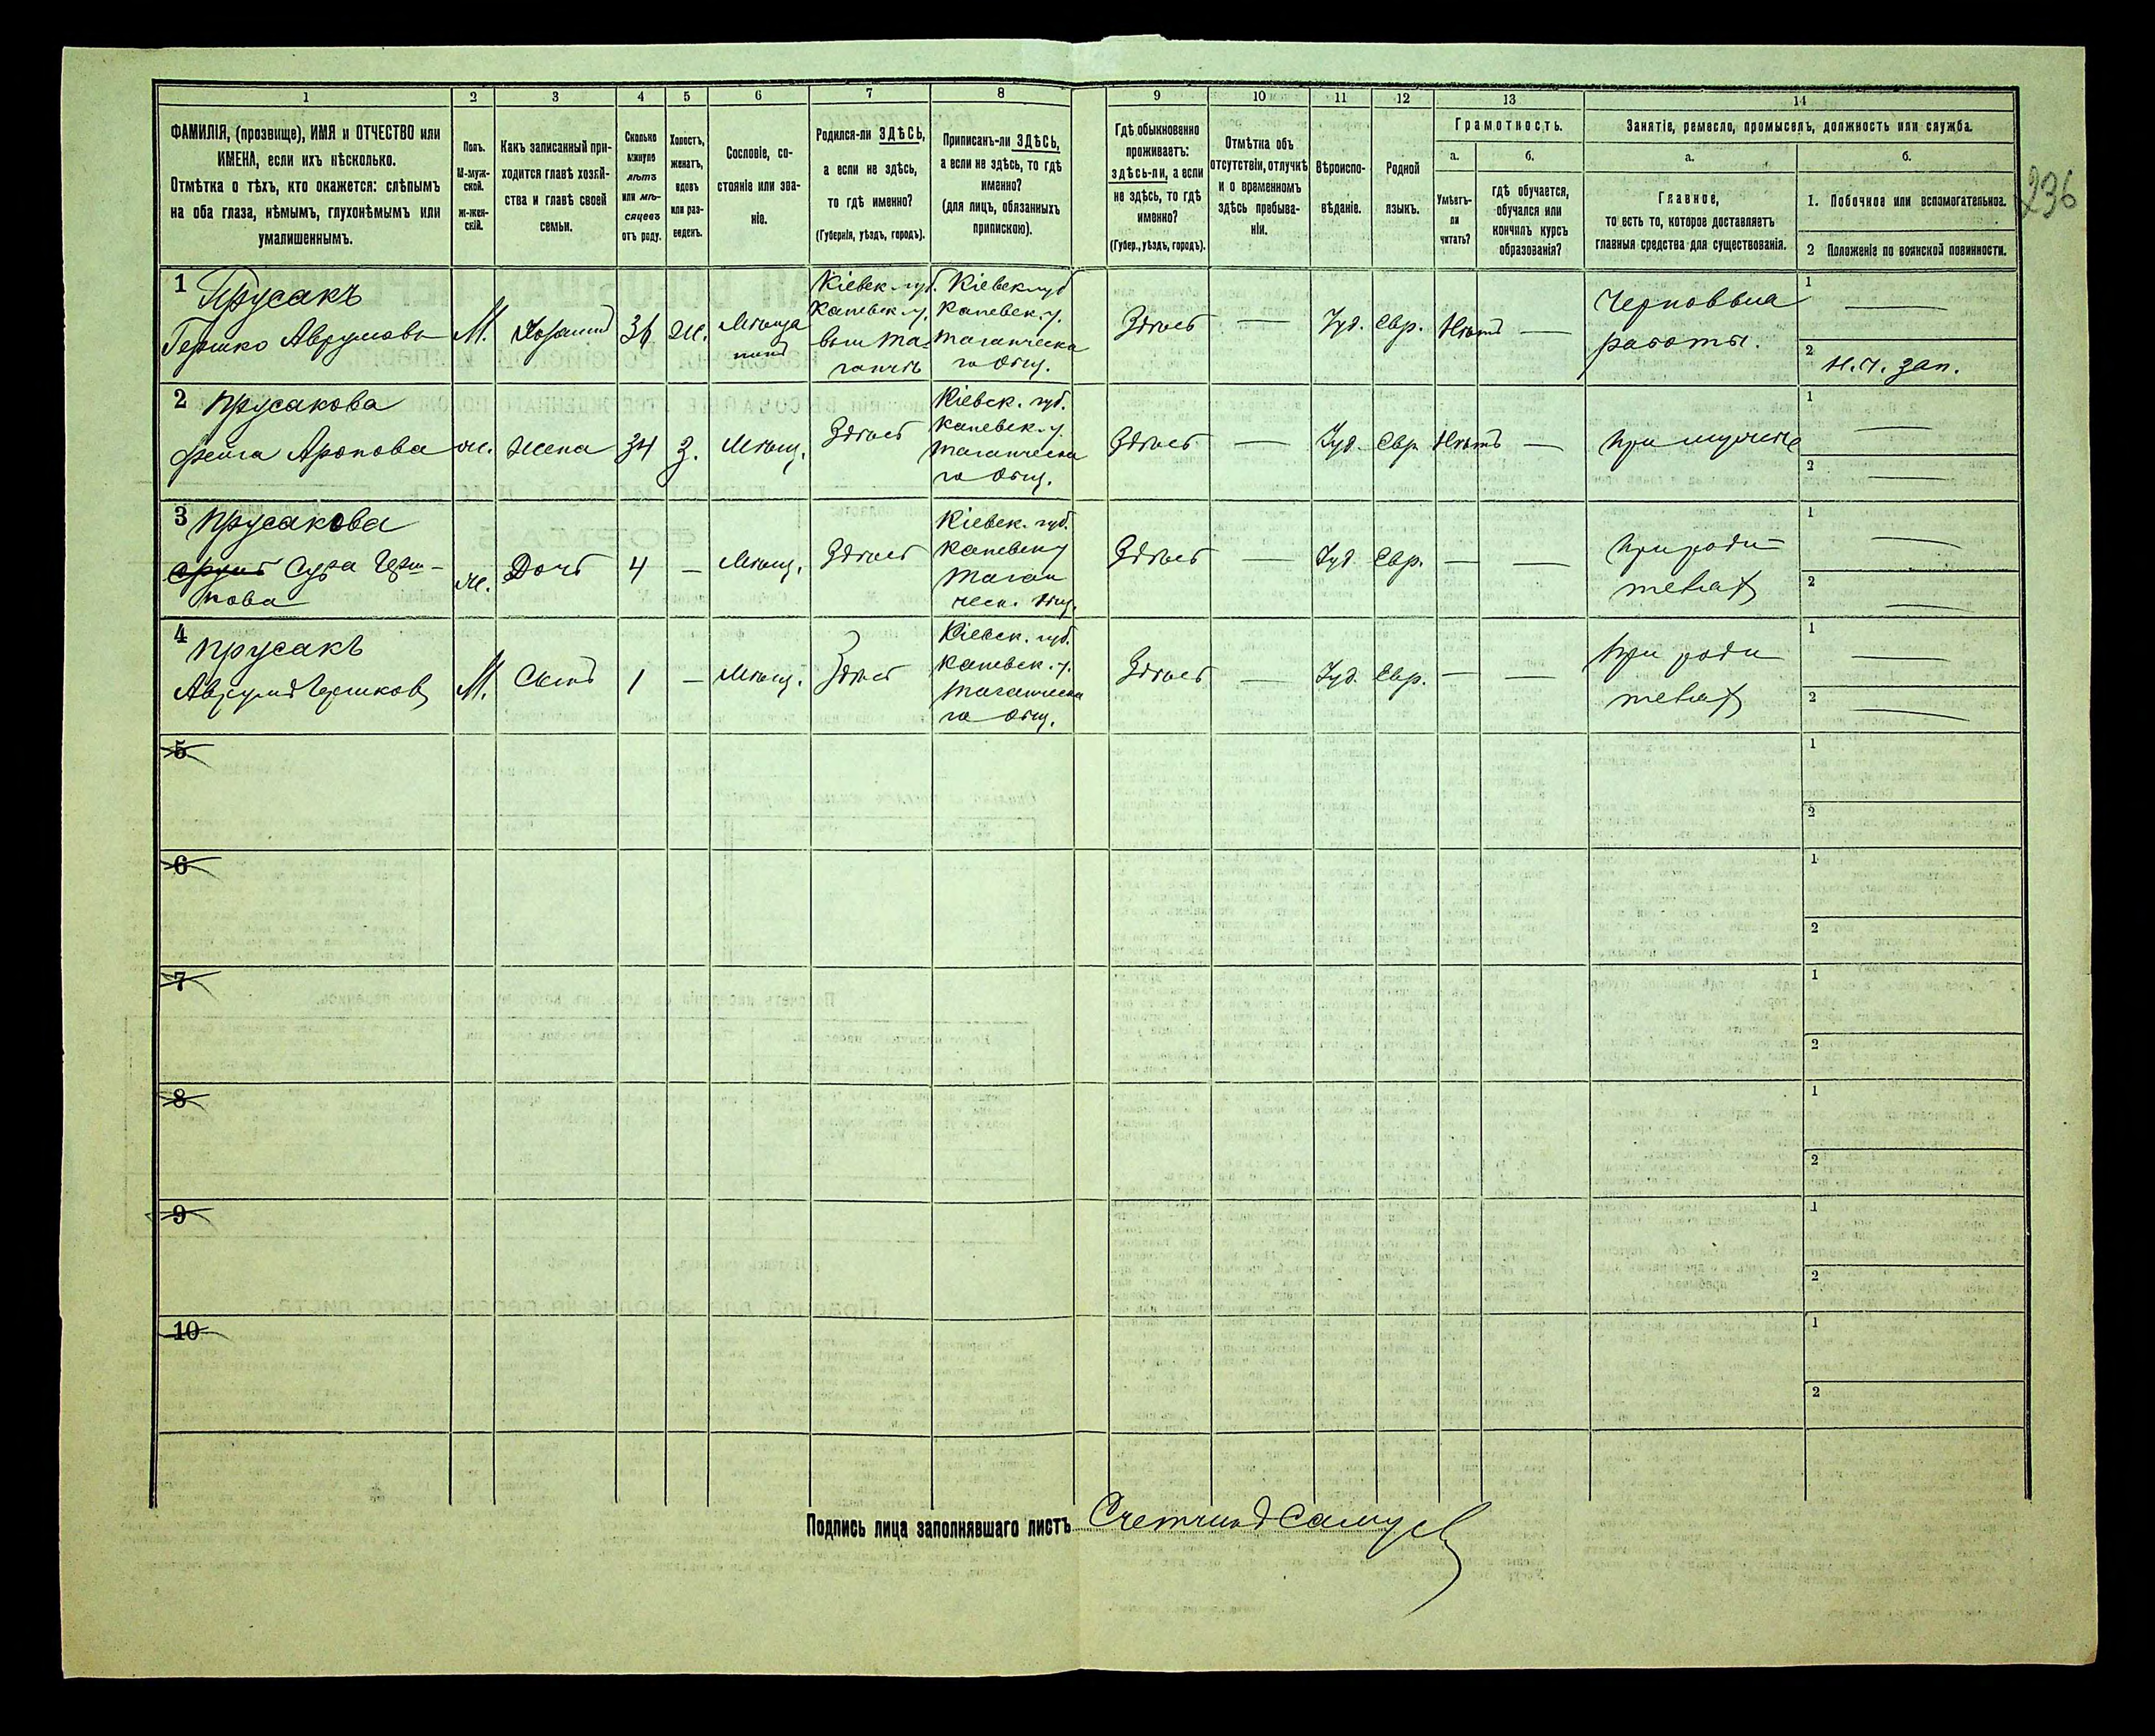 1
2
3
4
5
6
7
8
9
10
11
12
13
14
ФАМИЛІЯ, (прозвище), ИМЯ и ОТЧЕСТВО или
ИМЕНА, если ихъ нѣсколько.
Отмѣтка о тѣхъ, кто окажется: слѣпымъ
на оба глаза, нѣмымъ, глухонѣмымъ или
умалишеннымъ.
Полъ.
М-муж-
ской.
ж-жен-
скій.
Какъ записанный при-
ходится главѣ хозяй-
ства и главѣ своей
семьи.
Сколько
минуло
лѣтъ
или мѣ-
сяцевъ
отъ роду.
Холостъ,
женатъ,
вдовъ
или раз-
веденъ.
Сословіе, со-
стояніе или зва-
ніе.
Родился-ли ЗДѢСЬ,
а если не здѣсь,
то гдѣ именно?
(Губернія, уѣздъ, городъ).
Приписанъ-ли ЗДѢСЬ,
а если не здѣсь, то гдѣ
именно?
(для лицъ, обязанныхъ
припискою).
Гдѣ обыкновенно
проживаетъ:
здѣсь-ли, а если
не здѣсь, то гдѣ
именно?
(Губер., уѣздъ, городъ).
Отмѣтка объ
отсутствіи, отлучкѣ
и о временномъ
здѣсь пребыва-
ніи.
Вѣроиспо-
вѣданіе.
Родной
языкъ.
Грамотность.
а.
Умѣетъ-
ли
читать?
б.
гдѣ обучается,
обучался или
кончилъ курсъ
образованія?
Занятіе, ремесло, промыселъ, должность или служба.
а.
Главное,
то есть то, которое доставляетъ
главныя средства для существованія.
б.
1. Побочное или вспомогательное.
2 Положеніе по воинской повинности.
236
1
Прусакъ
Гершко Аврумовъ
М.
Хозяинъ
36
Ж.
Кіевск. губ.
Каневск. у.
Кіевск губ
Каневск. у.
го общ.
Здѣсь
—
Іуд.
Евр.
Нѣтъ
—
работы.
1
—
2
2
Прусакова
Фейга Аронова
ж.
Жена
34
З.
Мѣщ.
Здѣсь
Кіевск. губ.
Каневск. у.
го общ.
Здѣсь
—
Іуд.
Евр.
Нѣтъ
—
При мужѣ
1
—
2
—
3
Прусакова
Сура Герш-
кова
ж.
Дочь
4
—
Мѣщ.
Здѣсь
Кіевск. губ.
Каневск у
Здѣсь
—
Іуд.
Евр.
—
—
При роди-
теляхъ
1
—
2
—
4
Прусакъ
Аврумъ Гершковъ
М.
Сынъ
1
—
Мѣщ.
Здѣсь
Кіевск. губ.
Каневск. у.
го общ.
Здѣсь
—
Іуд.
Евр.
—
—
При роди
теляхъ
1
—
2
—
5
1
2
6
1
2
7
1
2
8
1
2
9
1
2
10
1
2
Подпись лица заполнявшаго листъ Счетчикъ